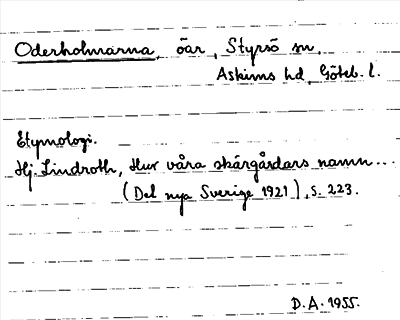 Oderholmarna, öar, Styrsö sn,
Askims hd, Göteb. l.
Etymologi.
Hj. Lindroth, Hur våra skärgårdars namn...
(Det nya Sverige 1921), s. 223.
D.A. 1955.